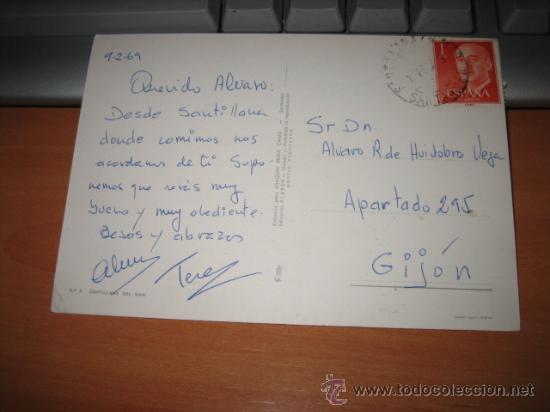 9-2-69
Querido Alvaro:
Desde Santillana
donde comimos nos
acordamos de ti Supo
nemos que seréis muy
bueno y muy obediente.
Besos y abrazos
Teres
Nº 6 SANTILLANA DEL MAR
ESPAÑA
Sr. Dn.
Alvaro R de Huidobro Vega
Apartado 295
Gijón
todocoleccion
www.todocoleccion.net